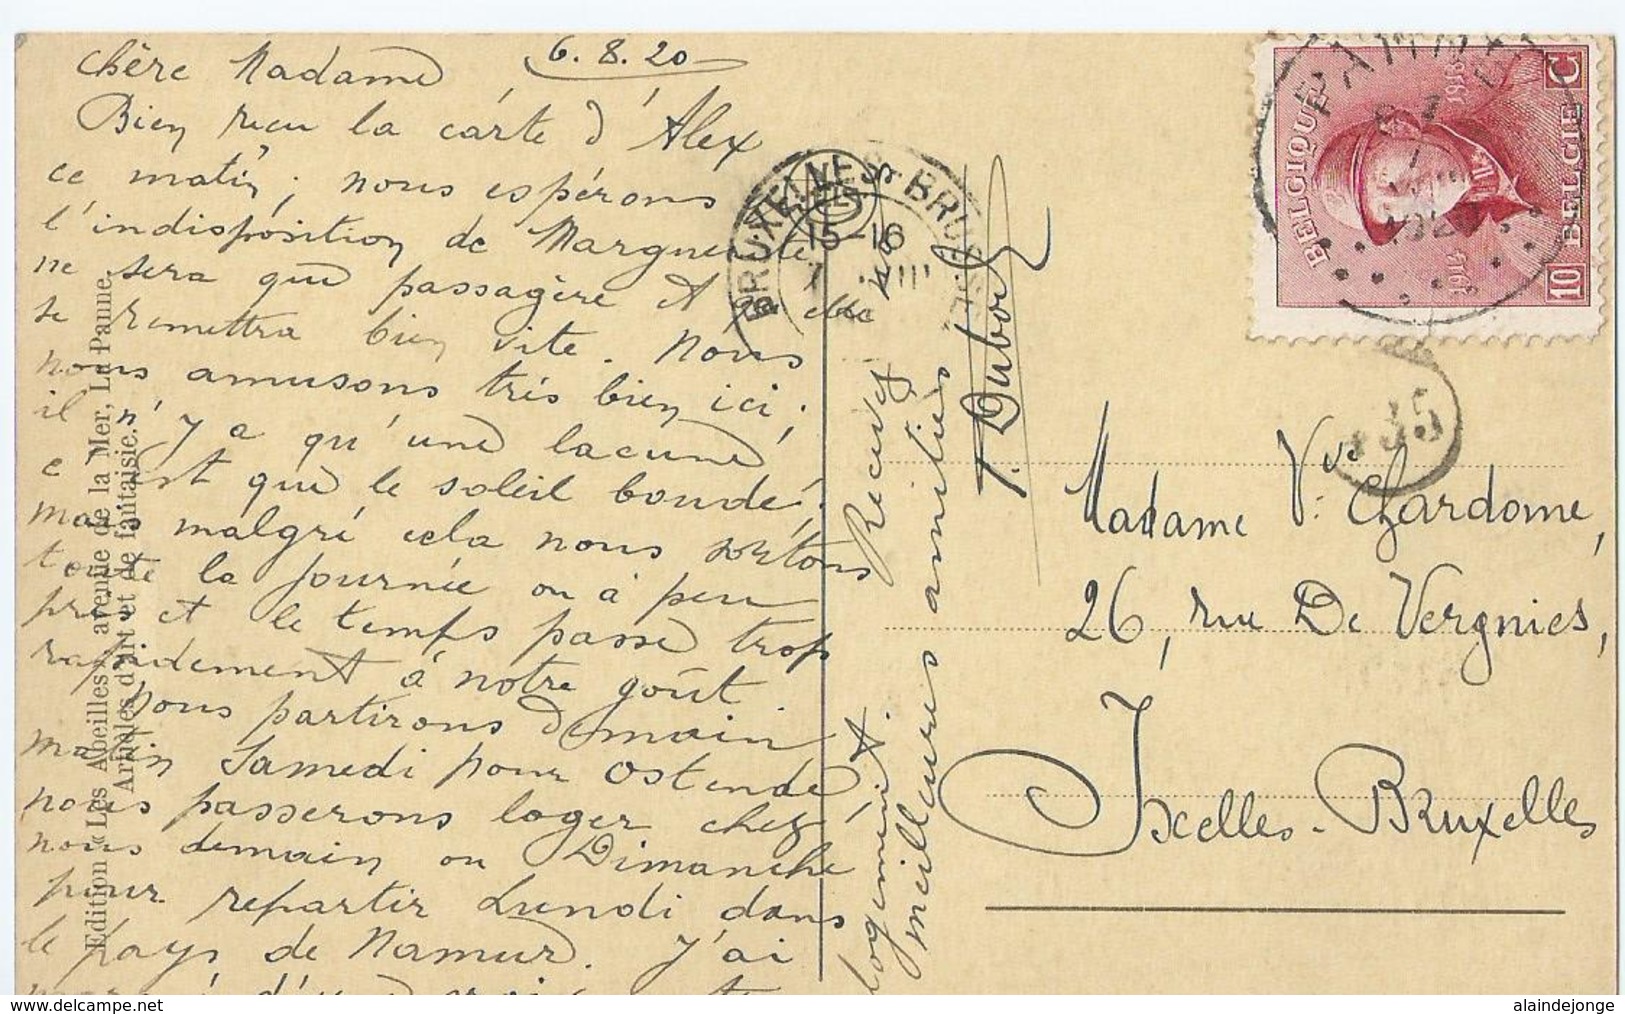 6.8.20
Chère Madame
Bien reçu la carte d'Alex
ce matin; nous espérons
l'indisposition de Marguerite
ne sera que passagère et qu'elle
se remettra bien vite. Nous
nous amusons très bien ici;
il n'y a qu'une lacune
c'est que le soleil boude!
mais malgré cela nous sortons
toute la journée ou à peu
près et le temps passe trop
rapidement à notre goût.
Nous partirons demain
matin Samedi pour Ostende
nous passerons loger chez
nous demain ou Dimanche
pour repartir Lundi dans
le pays de Namur. J'ai
logement.
Recevez nos
meilleures amitiés
T. Dubois
Edition « Les Abeilles », avenue de la Mer, La Panne.
Articles d'art et de fantaisie.
BRUXELLES BRUSSEL
15-16
7 VIII
PANNE
1920
BELGIQUE
BELGIE
10 C
1914
1918
335
Madame Vve V. Chardome,
26, rue De Vergnies,
Ixelles-Bruxelles
www.delcampe.net
alaindejonge